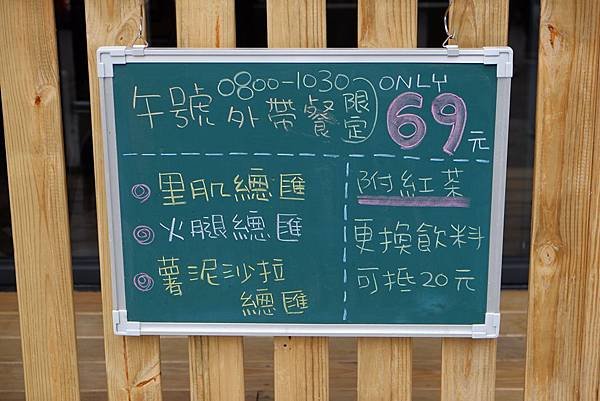 0800-1030 ONLY
午號外帶餐 限定 69元
里肌總匯
火腿總匯
薯泥沙拉
總匯
附紅茶
更換飲料
可抵20元